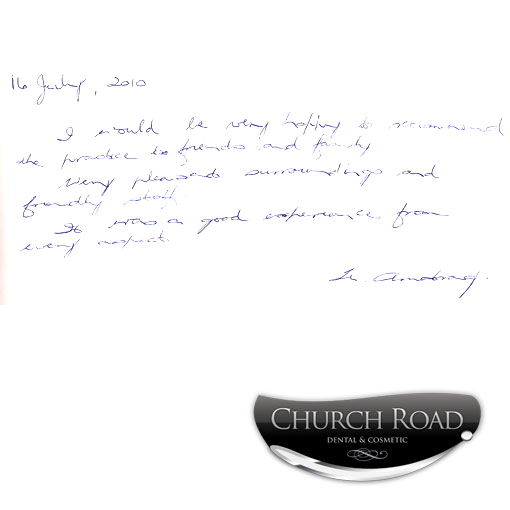 16 July, 2010
I would be very happy to recommend
the practice to friends and family
Very pleasant surroundings and
friendly staff.
It was a good experience from
every aspect.
Armstrong.
CHURCH ROAD
DENTAL & COSMETIC